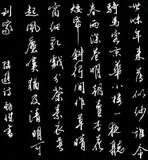 世味年来薄似紗誰令
騎馬客京華小樓一夜聽
春雨深巷明朝賣杏花
矮紙斜行閒作草晴
窗細乳戲分茶素衣莫
起風塵嘆猶及清明可
到家
陸游詩